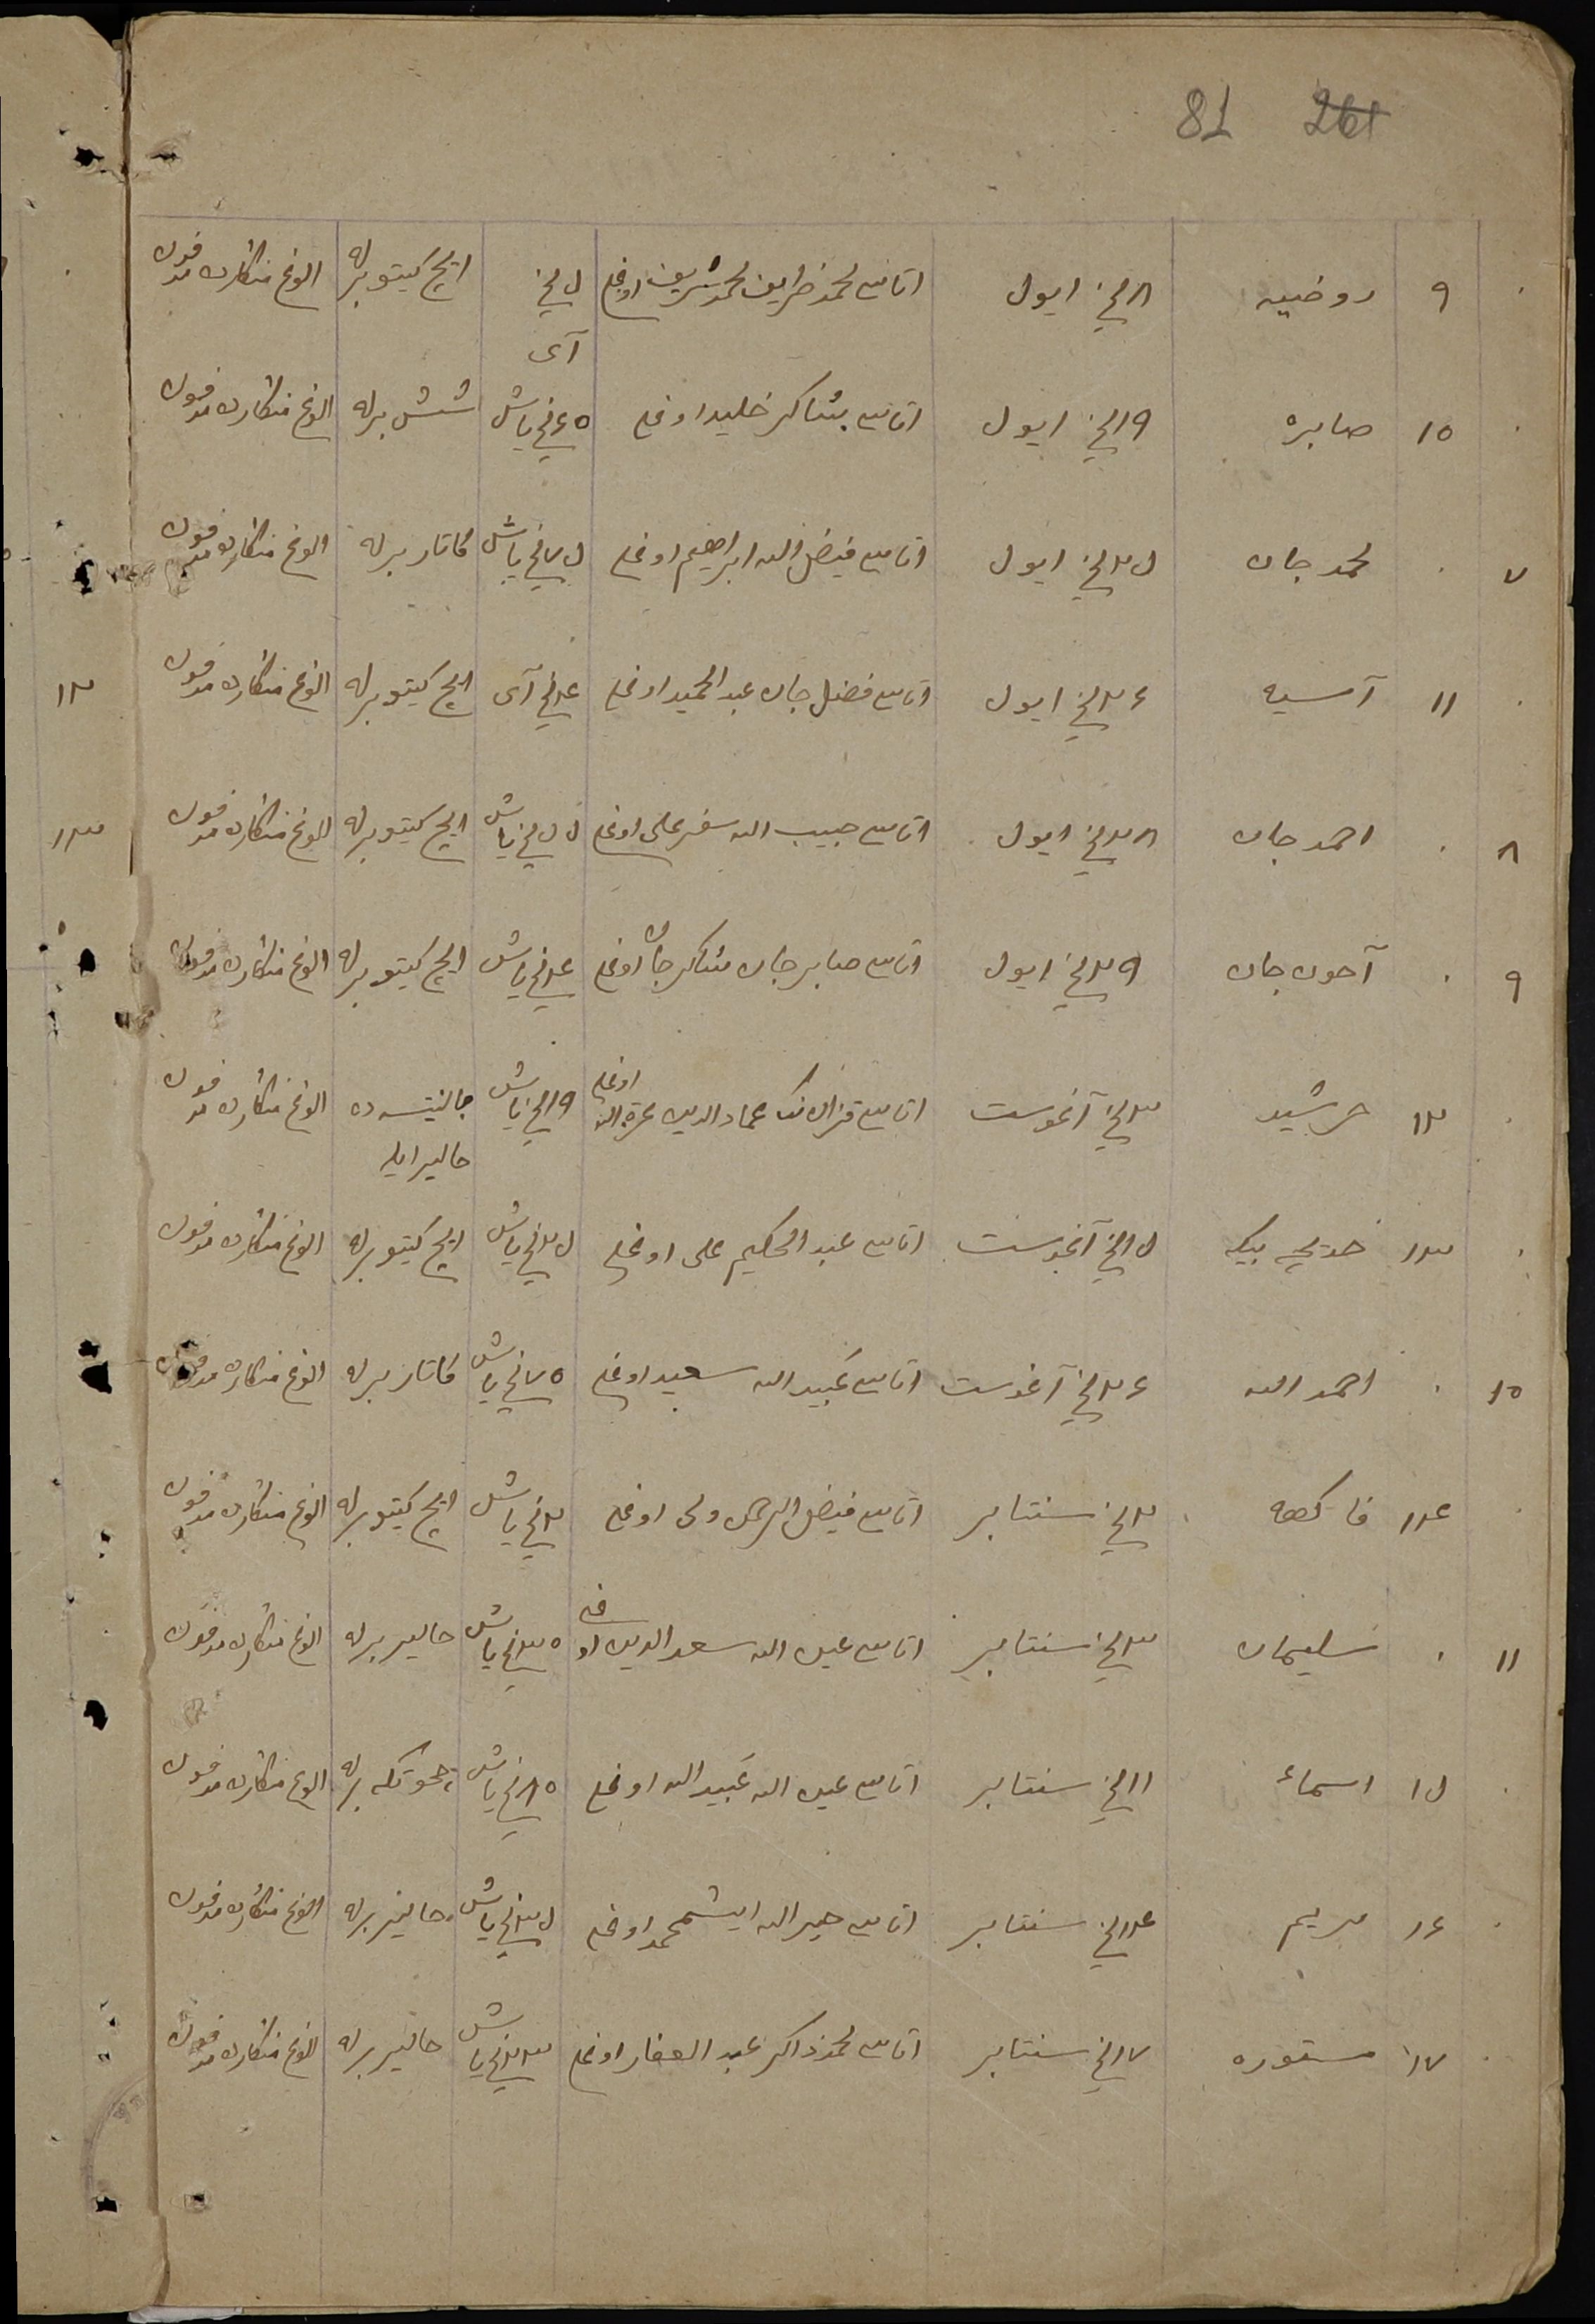 81 261
٩ روضیه ٨نچی ایول اتاسی محمدظریف محمدشریف اوغلی ٥نچی آی ایچ کیتو برله الوغ منكارده مدفون
١٠ صابره ١٩نچی ایول اتاسی شاکر خلید اوغلی ٦٠نچی یاش شش برله الوغ منكارده مدفون
٧ محمدجان ٢٥نچی ایول اتاسی فیض الله ابراهیم اوغلی ٧٥نچی یاش قاتار برله الوغ منكارده مدفون
١١ آسیه ٢٦نچی ایول اتاسی فضل جان عبدالحمید اوغلی ٤نچی آی ایچ کیتو برله الوغ منكارده مدفون ١٢
٨ احمدجان ٢٨نچی ایول اتاسی حبیب الله سفرعلی اوغلی ٥نچی یاش ایچ کیتو برله الوغ منكارده مدفون ١٣
٩ آخون جان ٢٩نچی ایول اتاسی صابرجان شاکرجان اوغلی ٤نچی یاش ایچ کیتو برله الوغ منكارده مدفون
١٢ خرشید ٣نچی آغوست اتاسی عماد الدین اوغلی ١٩نچی یاش الوغ منكارده مدفون
١٣ خدیجه بیکه ١٥نچی آغوست اتاسی عبدالحکیم علی اوغلی ٢٥نچی یاش ایچ کیتو برله الوغ منكارده مدفون
١٠ احمدالله ٢٦نچی آغوست اتاسی عبیدالله سعید اوغلی ٧٠نچی یاش قاتار برله الوغ منكارده مدفون
١٤ فاكهه ٢نچی سنتابر اتاسی فیض الرحمن ولی اوغلی ٢نچی یاش ایچ کیتو برله الوغ منكارده مدفون
١١ سلیمان ٣نچی سنتابر اتاسی عین الله سعدالدین اوغلی ٣٠نچی یاش حالیر برله الوغ منكارده مدفون
١٥ اسماء ١١نچی سنتابر اتاسی عین الله عبیدالله اوغلی ٨٠نچی یاش برله الوغ منكارده مدفون
١٦ مریم ١٤نچی سنتابر اتاسی خیرالله ایشمحمد اوغلی ٣٥نچی یاش حالیر برله الوغ منكارده مدفون
١٧ مستوره ١٧نچی سنتابر اتاسی محمدذاکر عبدالغفار اوغلی ٢٣نچی یاش حالیر برله الوغ منكارده مدفون